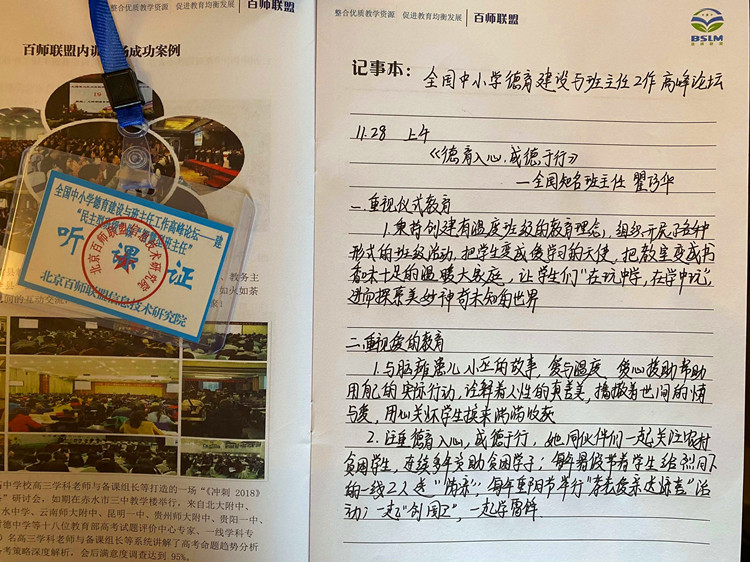 整合优质教学资源 促进教育均衡发展 百师联盟
百师联盟内训现场成功案例
全国中小学德育建设与班主任工作高峰论坛—建
听课证
北京百师联盟信息技术研究院
北京百师联盟信息技术研究院
教务主
如火如荼
间的互动交流
中学校高三学科老师与备课组长等打造的一场“《冲刺 2018》
”研讨会,如期在赤水市三中教学楼举行,来自北大附中、
水中学、云南师大附中、昆明一中、贵州师大附中、贵阳一中、
德中学等十八位教育部高考试题评价中心专家、一线学科专
名高三学科老师与备课组长等系统讲解了高考命题趋势分析
考策略深度解析,会后满意度调查达到 95%。
整合优质教学资源 促进教育均衡发展 百师联盟
BSLM
百师联盟
记事本: 全国中小学德育建设与班主任工作高峰论坛
11.28 上午
《德育入心,成德于行》
—全国知名班主任 瞿
一.重视仪式教育
1.秉持创建有温度班级的教育理念,组织开展了各种
形式的班级活动,把学生变成爱学习的天使,把教室变成书
香味十足的温暖大家庭,让学生们“在玩中学,在学中玩”,
进而探索美妙神奇未知的世界
二.重视爱的教育
1.与脑瘫患儿小丑的故事,爱与温度,爱心援助帮助
用自己的实际行动,诠释着人性的真善美,播撒着世间的情
与爱,用心关怀学生换来满满收获
2.注重德育入心,成德于行,她同伙伴们一起关注农村
贫困学生,连续多年资助贫困学子;每年暑假带着学生给烈日下
的一线工人送“清凉”;每年重阳节举行“孝老爱亲送惊喜”活
动;一起“创园”,一起学雷锋